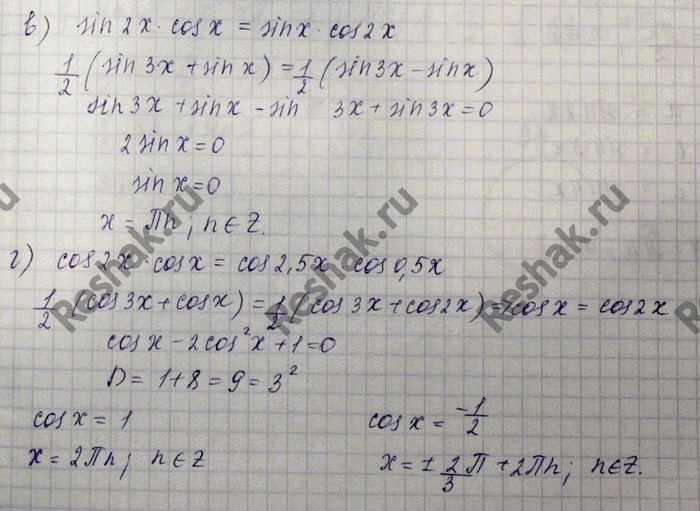 в) sin 2x · cos x = sin x · cos 2x
1/2 (sin 3x + sin x) = 1/2 (sin 3x - sin x)
sin 3x + sin x - sin 3x + sin 3x = 0
2 sin x = 0
sin x = 0
x = πn, n ∈ Z.
г) cos 2x · cos x = cos 2,5x cos 0,5x
1/2 (cos 3x + cos x) = 1/2 (cos 3x + cos 2x) = cos x = cos 2x
cos x - 2cos² x + 1 = 0
D = 1 + 8 = 9 = 3²
cos x = 1 cos x = -1/2
x = 2πn; n ∈ Z x = ± 2/3 π + 2πn; n ∈ Z.
Reshak.ru
Reshak.ru
Reshak.ru